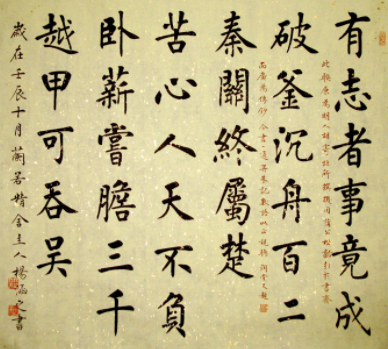 有志者事竟成
此聯原為明人
破釜沉舟百二
秦關終屬楚
苦心人天不負
卧薪嘗膽三千
越甲可吞吴
歲在壬辰十月蘭若精舍主人楊之書